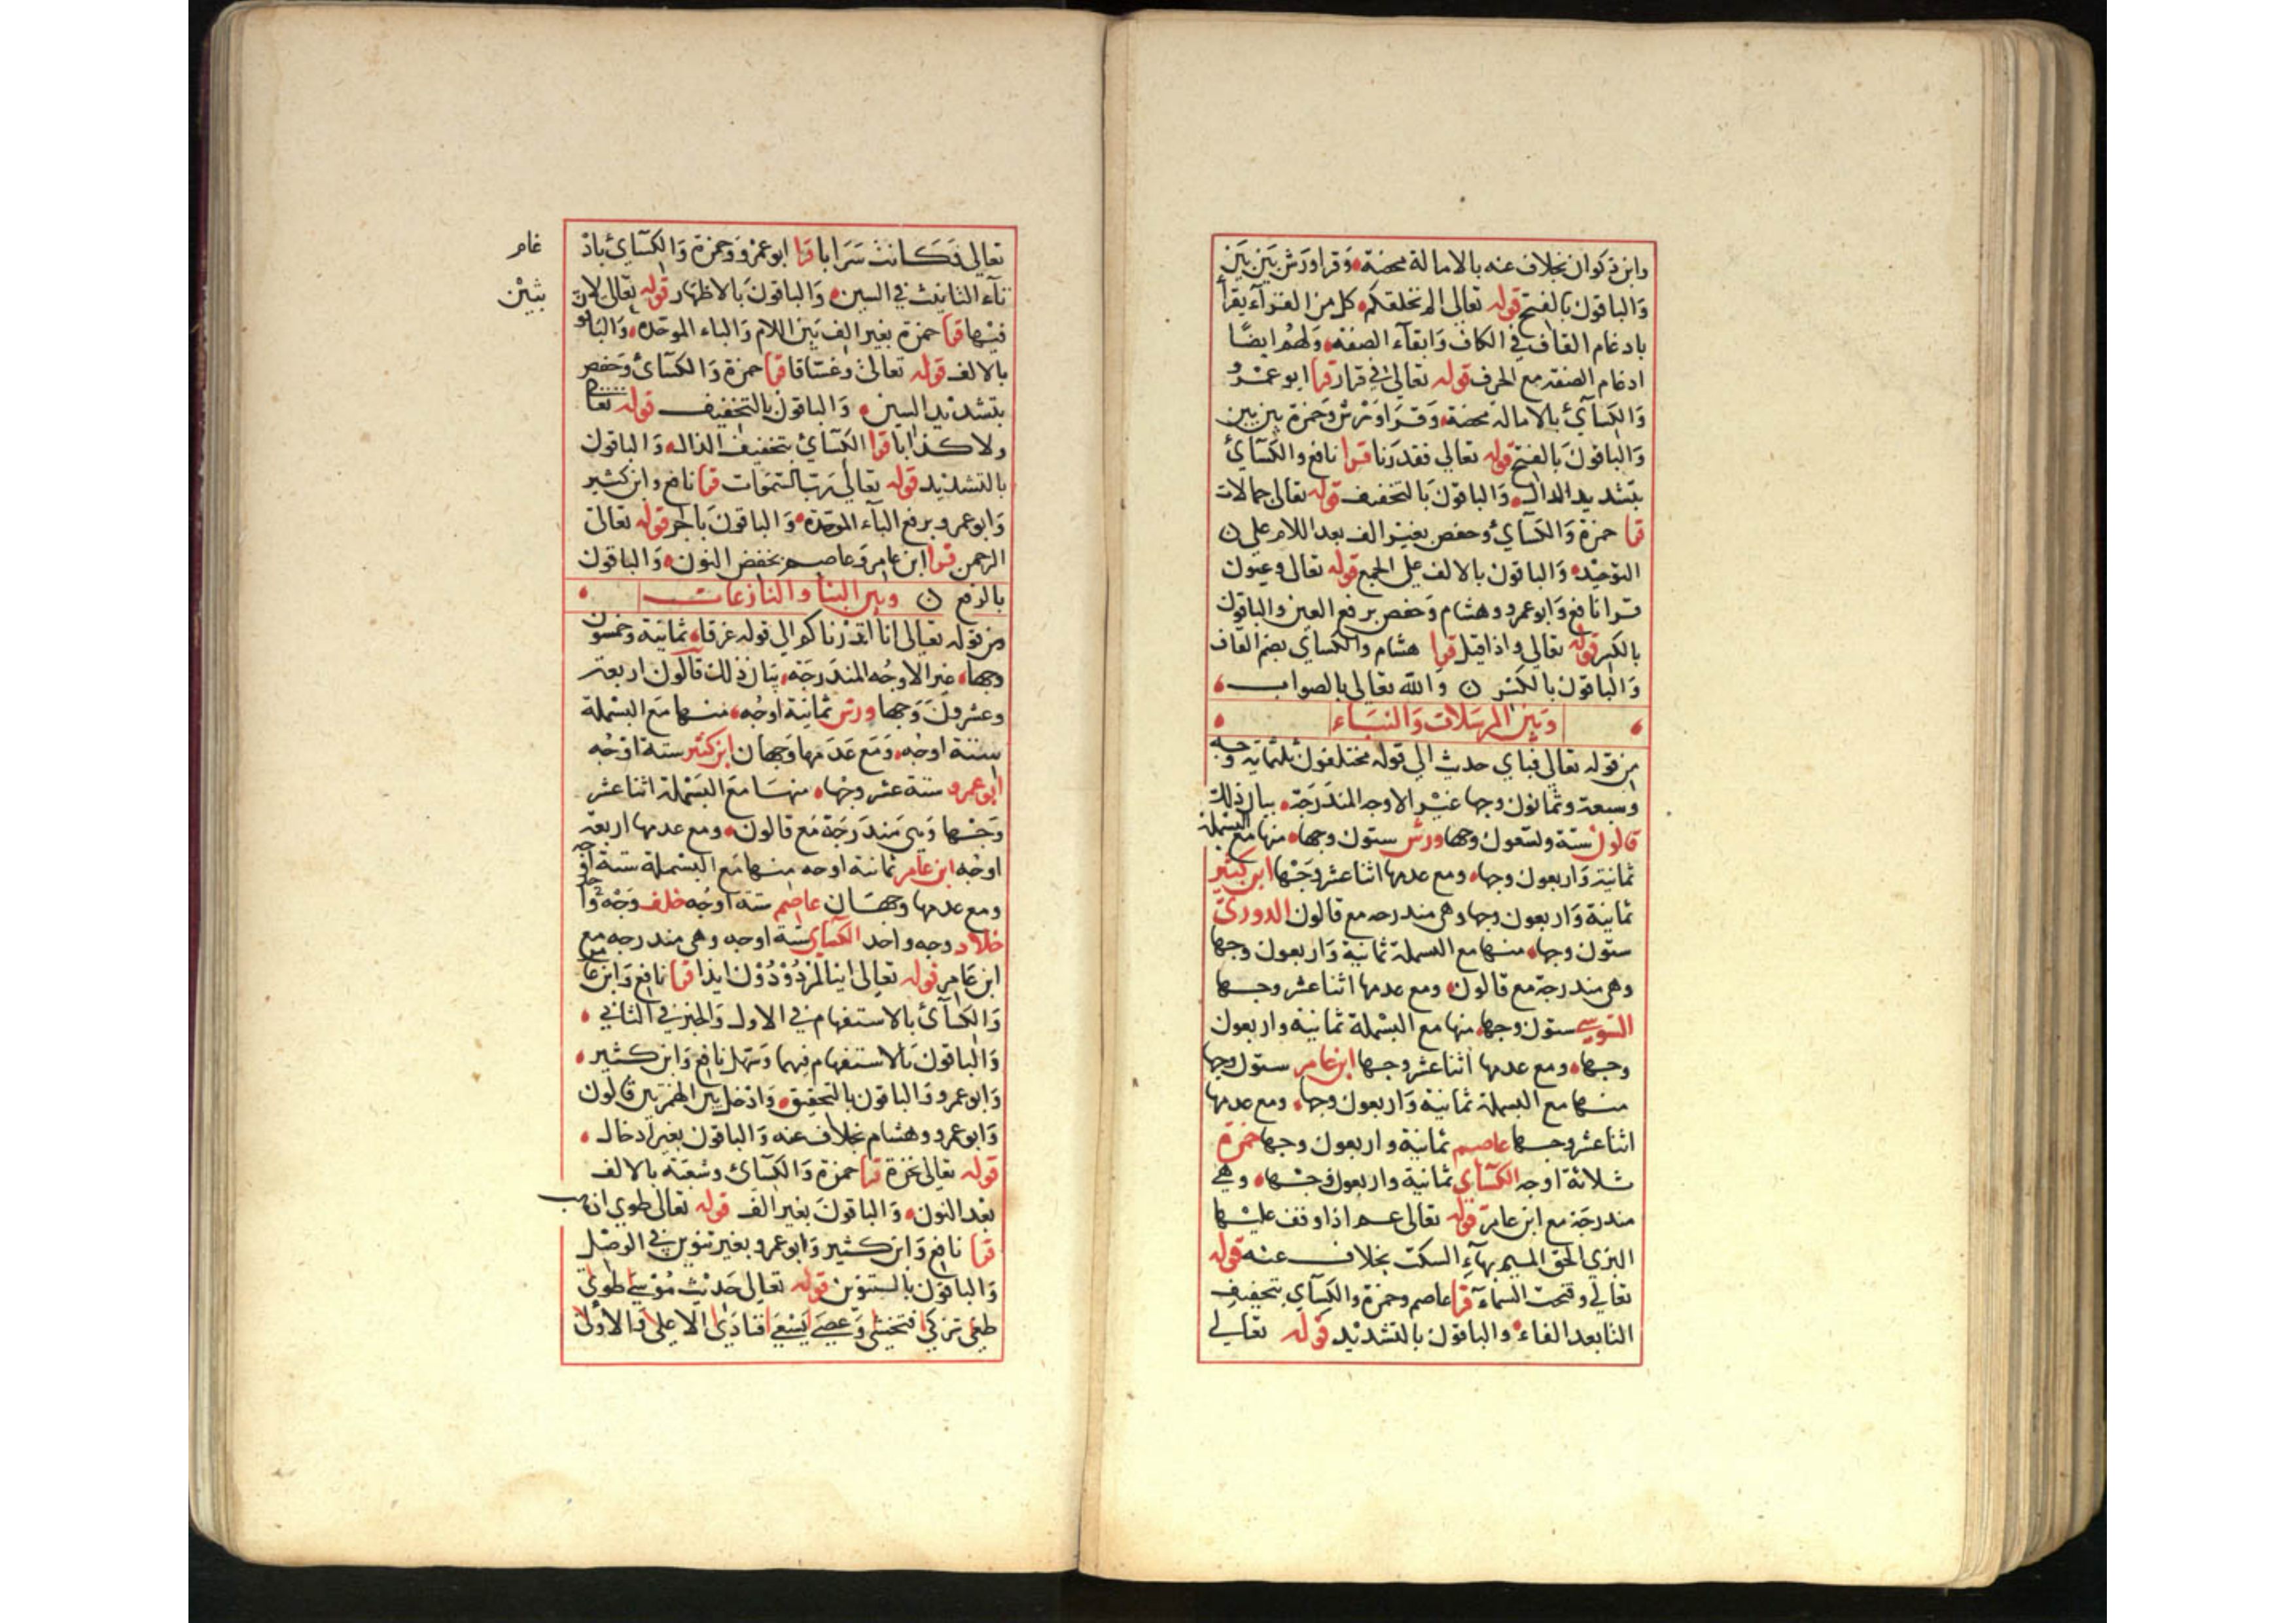 وابن ذكوان بخلاف عنه بالامالة محضة وقرا ورش بين بين
والباقون بالفتح قوله تعالى الم نخلقكم كل من القرآء يقرأ
بادغام القاف في الكاف وابقآء الصفة ولهم ايضًا
ادغام الصفة مع الحرف قوله تعالى في قرار قرا ابو عمرو
والكسآئ بالامالة محضة وقرا ورش وحمزة بين بين
والباقون بالفتح قوله تعالي فقدرنا قرا نافع والكسآئ
بتشديد الدال والباقون بالتخفيف قوله تعالى جمالات
قرا حمزة والكسآئ وحفص بغير الف بعد اللام على
التوحيد والباقون بالالف على الجمع قوله تعالى وعيون
قرا نافع وابو عمرو وهشام وحفص برفع العين والباقون
بالكسر قوله تعالي واذا قيل قرا هشام والكساي بضم القاف
والباقون بالكسر والله تعالى بالصواب
وبين المرسلات والنبـاء
من قوله تعالى فباي حديث الي قوله مختلفون ثلثماية وجه
وسبعة وثمانون وجها غير الاوجه المندرجة بيان ذلك
قالون ستة وتسعون وجها ورش ستون وجها منها مع البسملة
ثمانية واربعون وجها ومع عدمها اثنا عشر وجها ابن كثير
ثمانية واربعون وجها وهي مندرجه مع قالون الدوري
ستون وجها منها مع البسملة ثمانية واربعون وجها
وهي مندرجة مع قالون ومع عدمها اثنا عشر وجها
السوسي ستون وجها منها مع البسملة ثمانية واربعون
وجها ومع عدمها اثنا عشر وجها ابن عامر ستون وجها
منها مع البسملة ثمانية واربعون وجها ومع عدمها
اثنا عشر وجها عاصم ثمانية واربعون وجها حمزة
ثلاثة اوجه الكسآي ثمانية واربعون وجها وهي
مندرجة مع ابن عامر قوله تعالى عم اذا وقف عليها
البزي الحق الميم بهآء السكت بخلاف عنه قوله
تعالي وفتحت السمآء قرا عاصم وحمزة والكسآي بتخفيف
التا بعد الفاء والباقون بالتشديد قوله تعالي
تعالى فكانت سرابا قرا ابو عمرو وحمزة والكسآئ باد
غام
تآء التانيث في السين والباقون بالاظهار قوله تعالى لا
بثين
فيها قرا حمزة بغير الف بين اللام والباء الموحدة والباقو
بالالف قوله تعالى وغساقا قرا حمزة والكسآئ وحفص
بتشديد السين والباقون بالتخفيف قوله تعالى
ولا كذابا قرا الكسآئ بتخفيف الذال والباقون
بالتشديد قوله تعالى رب السموات قرا نافع وابن كثير
وابو عمرو برفع البآء الموحدة والباقون بالجر قوله تعالى
الرحمن قرا ابن عامر وعاصم بخفض النون والباقون
بالرفع وبين النبا والنازعات
من قوله تعالى انا انذرناكم الى قوله غرقا ثمانية وخمسون
وجها غير الاوجه المندرجة بيان ذلك قالون اربعة
وعشرون وجها ورش ثمانية اوجه منها مع البسملة
ستة اوجه ومع عدمها وجهان ابن كثير ستة اوجه
ابو عمرو ستة عشر وجها منها مع البسملة اثنا عشر
وجها وهي مندرجة مع قالون ومع عدمها اربعة
اوجه ابن عامر ثمانية اوجه منها مع البسملة ستة اوجه
ومع عدمها وجهان عاصم ستة اوجه خلف وجه واحد
خلاد وجه واحد الكسآي ستة اوجه وهي مندرجه مع
ابن عامر قوله تعالى اينا لمردودون ايذا قرا نافع وابن عامر
والكسآئ بالاستفهام في الاول والخبر في الثاني
والباقون بالاستفهام فيهما وسهل نافع وابن كثير
وابو عمرو والباقون بالتحقيق وادخل بين الهمزتين قالون
وابو عمرو وهشام بخلاف عنه والباقون بغير ادخال
قوله تعالى نخرة قرا حمزة والكسآئ وشعبة بالالف
بعد النون والباقون بغير الف قوله تعالى طوي اذهب
قرا نافع وابن كثير وابو عمرو بغير تنوين في الوصل
والباقون بالتنوين قوله تعالى حديث موسى طوي
طغى تزكى فتخشى وعصى يسعى فنادى الاعلى والاولى